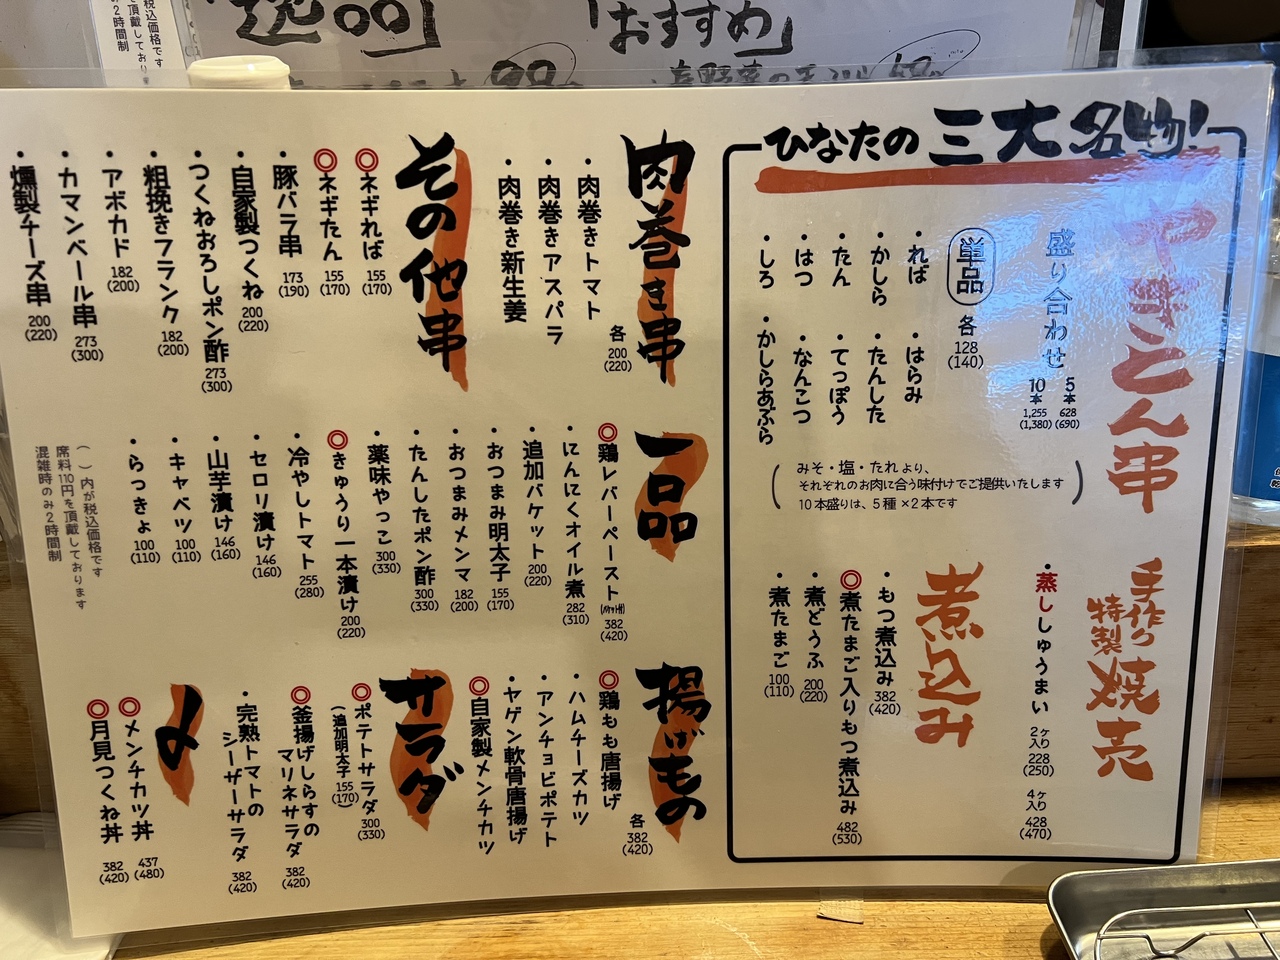 逸品
おすすめ
税込価格です
頂戴しており
み2時間制
ひなたの三大名物!
やきとん串
盛り合わせ
5本 628 (690)
10本 1,255 (1,380)
単品 各 128 (140)
・れば ・はらみ
・かしら ・たんした
・たん ・てっぽう
・はつ ・なんこつ
・しろ ・かしらあぶら
みそ・塩・たれより、
それぞれのお肉に合う味付けでご提供いたします
10本盛りは、5種×2本です
手作り
特製
焼売
・蒸ししゅうまい 2ヶ入り 228 (250) 4ヶ入り 428 (470)
煮込み
・もつ煮込み 382 (420)
◎煮たまご入りもつ煮込み 482 (530)
・煮どうふ 200 (220)
・煮たまご 100 (110)
肉巻き串 各 200 (220)
・肉巻きトマト
・肉巻きアスパラ
・肉巻き新生姜
その他串
◎ネギれば 155 (170)
◎ネギたん 155 (170)
・豚バラ串 173 (190)
・自家製つくね 200 (220)
・つくねおろしポン酢 273 (300)
・粗挽きフランク 182 (200)
・アボカド 182 (200)
・カマンベール串 273 (300)
・燻製チーズ串 200 (220)
一品
◎鶏レバーペースト 382 (420)
・にんにくオイル煮 282 (310)
・追加バケット 200 (220)
・おつまみ明太子 155 (170)
・おつまみメンマ 182 (200)
・たんしたポン酢 300 (330)
・薬味やっこ 300 (330)
◎きゅうり一本漬け 200 (220)
・冷やしトマト 255 (280)
・セロリ漬け 146 (160)
・山芋漬け 146 (160)
・キャベツ 100 (110)
・らっきょ 100 (110)
( )内が税込価格です
席料110円を頂戴しております
混雑時のみ2時間制
揚げもの 各 382 (420)
◎鶏もも唐揚げ
・ハムチーズカツ
・アンチョビポテト
・ヤゲン軟骨唐揚げ
◎自家製メンチカツ
サラダ
◎ポテトサラダ 300 (330)
(追加明太子 155 (170))
◎釜揚げしらすの
マリネサラダ 382 (420)
・完熟トマトの
シーザーサラダ 382 (420)
〆
◎メンチカツ丼 437 (480)
◎月見つくね丼 382 (420)